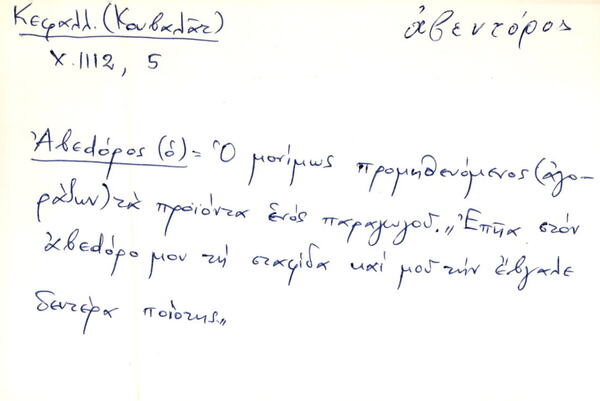 Κεφαλλ. (Κουβαλᾶτ)
ἀβεντόρος
Χ. 1112, 5
Ἀβεdόρος (ὁ) = Ὁ μονίμως προμηθευόμενος (ἀγο-
ράζων) τὰ προϊόντα ἑνός παραγωγοῦ. „Ἐπῆα στόν
ἀβεdόρο μου τή σταφίδα καί μοῦ τήν ἔβγαλε
δευτέρα ποιότης„